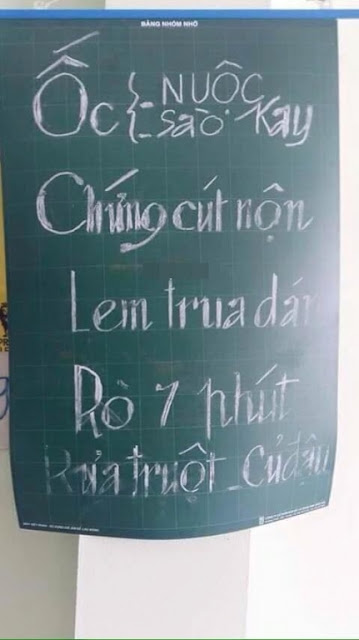 BẢNG NHÓM NHỎ
Ốc { - NUỘC
- Sào Kay
Chứng cút nộn
Lem trua dán
Rò 7 phút
Rửa truột _ Củ đậu